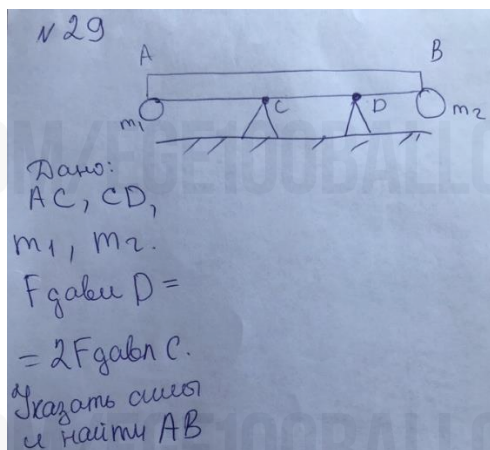 N 29
A B
C D
m₁ m₂
Дано:
AC, CD,
m₁, m₂.
F давл D =
= 2F давл C.
Указать силы
и найти AB